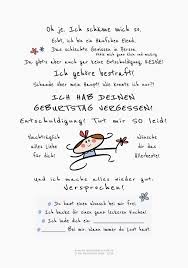 Oh je. Ich schäme mich so.
Echt, ich bin ein Häufchen Elend.
Das schlechte Gewissen in Person.
Da gibts aber auch gar keine Entschuldigung, KEINE!
Ich gehöre bestraft!
Schande über mein Haupt! Wie konnte ich nur?!
ICH HAB DEINEN
GEBURTSTAG VERGESSEN!
Entschuldigung! Tut mir SO leid!
Nachträglich
alles Liebe
für dich!
Wünsche
dir das
Allerbeste!
und ich mache alles wieder gut.
Versprochen!
Du hast einen Wunsch bei mir frei.
Ich backe dir einen ganz leckeren Kuchen!
Ich lade dich ein
Bei mir. Wann immer du Lust hast.